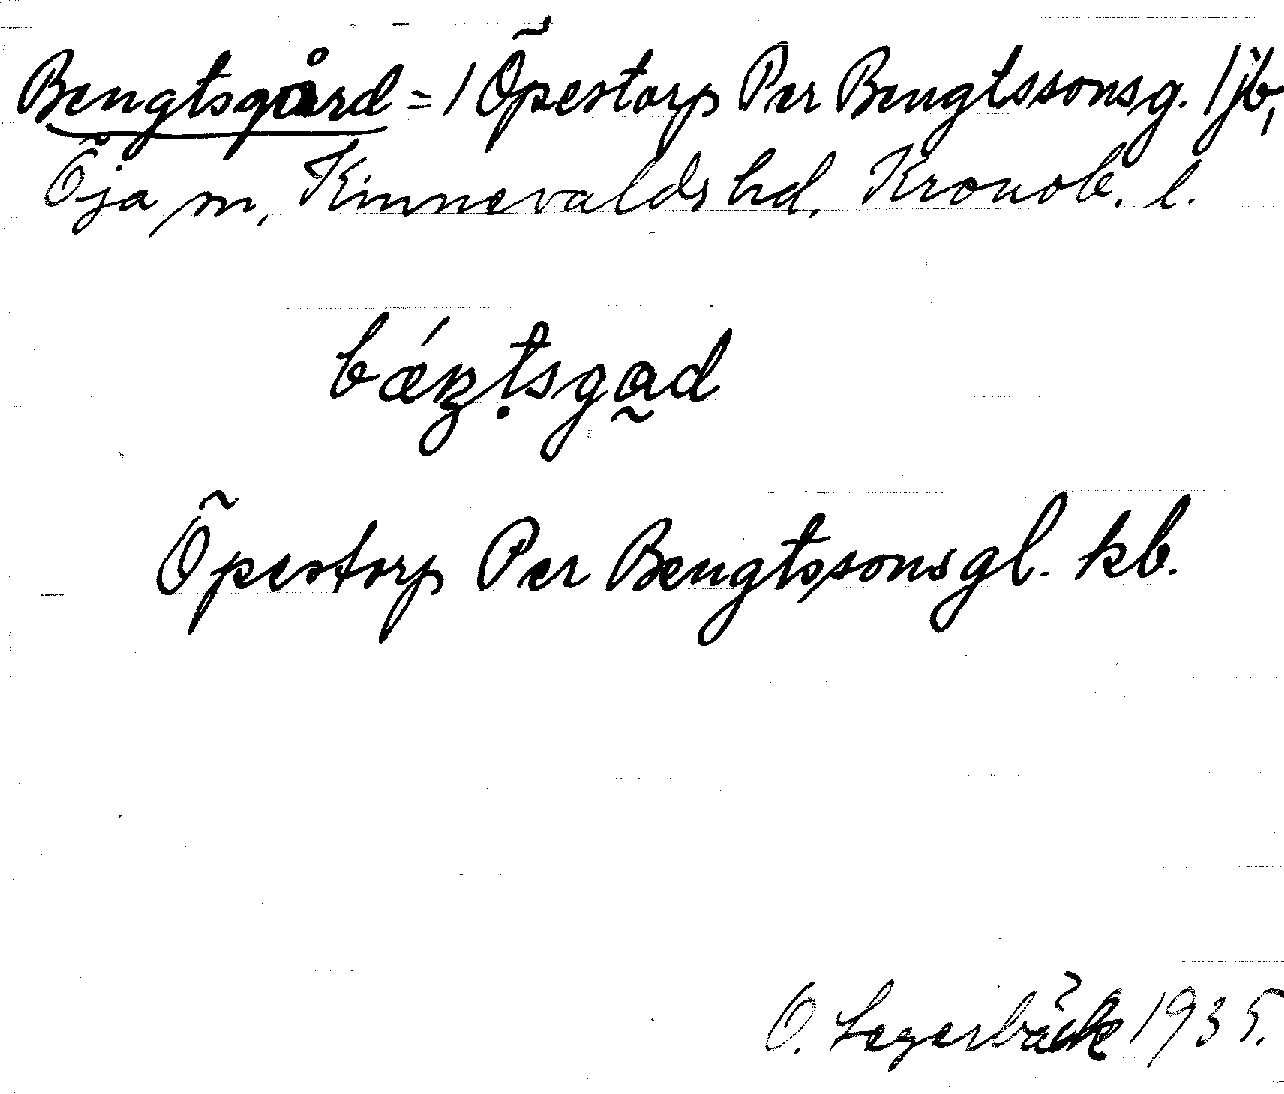 Bengtsgård = / Öpestorp Per Bengtssonsg. / jb,
Öja sn, Kinnevalds hd, Kronob. l.
Öpestorp Per Bengtssonsgl. kb.
O. Lagerbäck 1935.